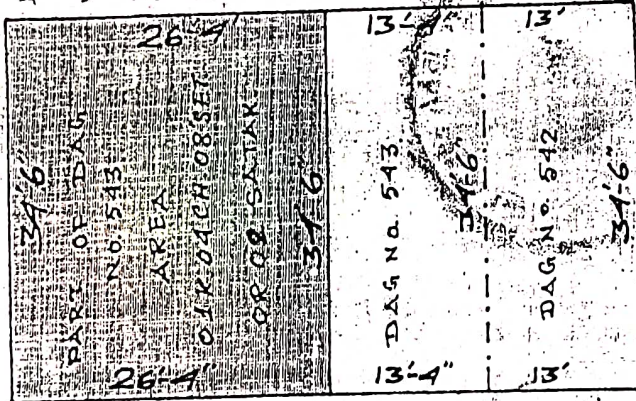 26'-4"
13'-4"
13'
34'-6"
PART OF DAG
No. 543
AREA
01K 04CH 08SFT
OR 02 SATAK
34'-6"
DAG No. 543
34'-6"
DAG No. 542
34'-6"
26'-4"
13'-4"
13'